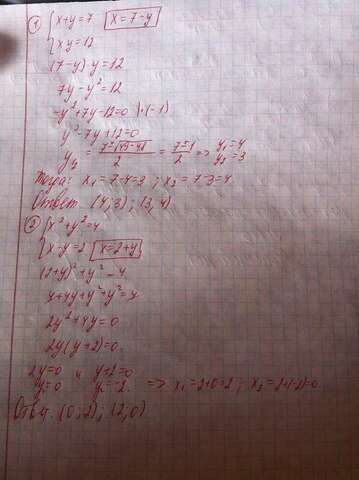 ① { x+y=7 x=7-y
xy=12
(7-y)·y=12
7y-y²=12
-y²+7y-12=0 |·(-1)
y²-7y+12=0
y = 7±√49-48 / 2 = 7±1 / 2 => y₁=4 y₂=3
Тогда: x₁=7-4=3 ; x₂=7-3=4
Ответ. (4;3); (3,4)
② { x²+y²=4
x-y=2 x=2+y
(2+y)²+y²=4
4+4y+y²+y²=4
2y²+4y=0
2y(y+2)=0
2y=0 и y+2=0
y=0 y=-2 => x₁=2+0=2 ; x₂=2+(-2)=0
Ответ. (0;2); (2,0)